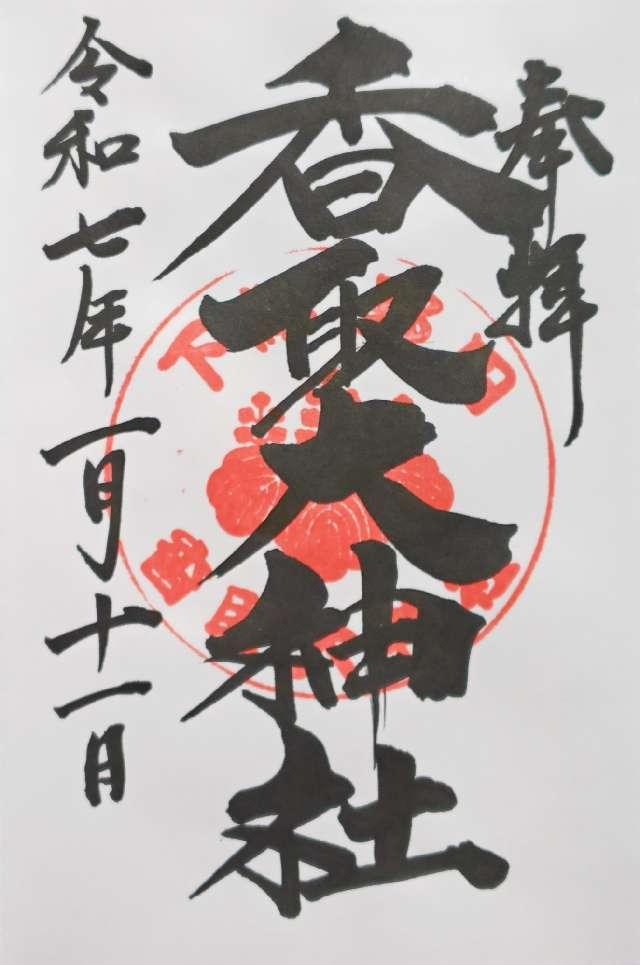 奉拝
香取大神社
令和七年一月十一日